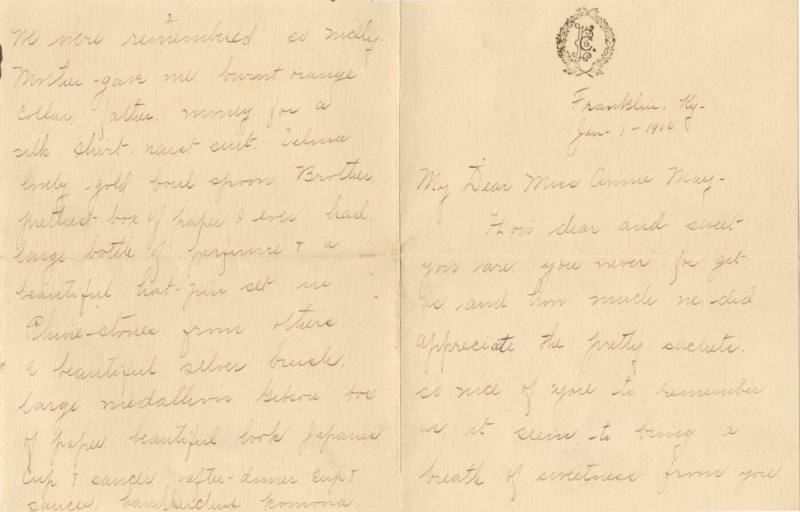 Franklin, Ky-
Jan- 1- 1904
My Dear Miss Annie May-
How dear and sweet
you are, you never for get
us and how much we did
appreciate the pretty sachets.
so nice of you to remember
us, it seem to bring a
breath of sweetness from you
We were remembered so nicely.
Mother gave me burnt orange
collar, father money for a
silk shirt-waist suit. Velma
lovely gold bowl spoon Brother,
prettiest box of paper I ever had.
large bottle of perfume & a
beautiful hat-pin set in
Rhine-stones from others.
a beautiful silver brush,
large medallion Gibson box
of paper beautiful book Japanese
cup & saucer, after-dinner cup &
saucer, handkerchief komona,